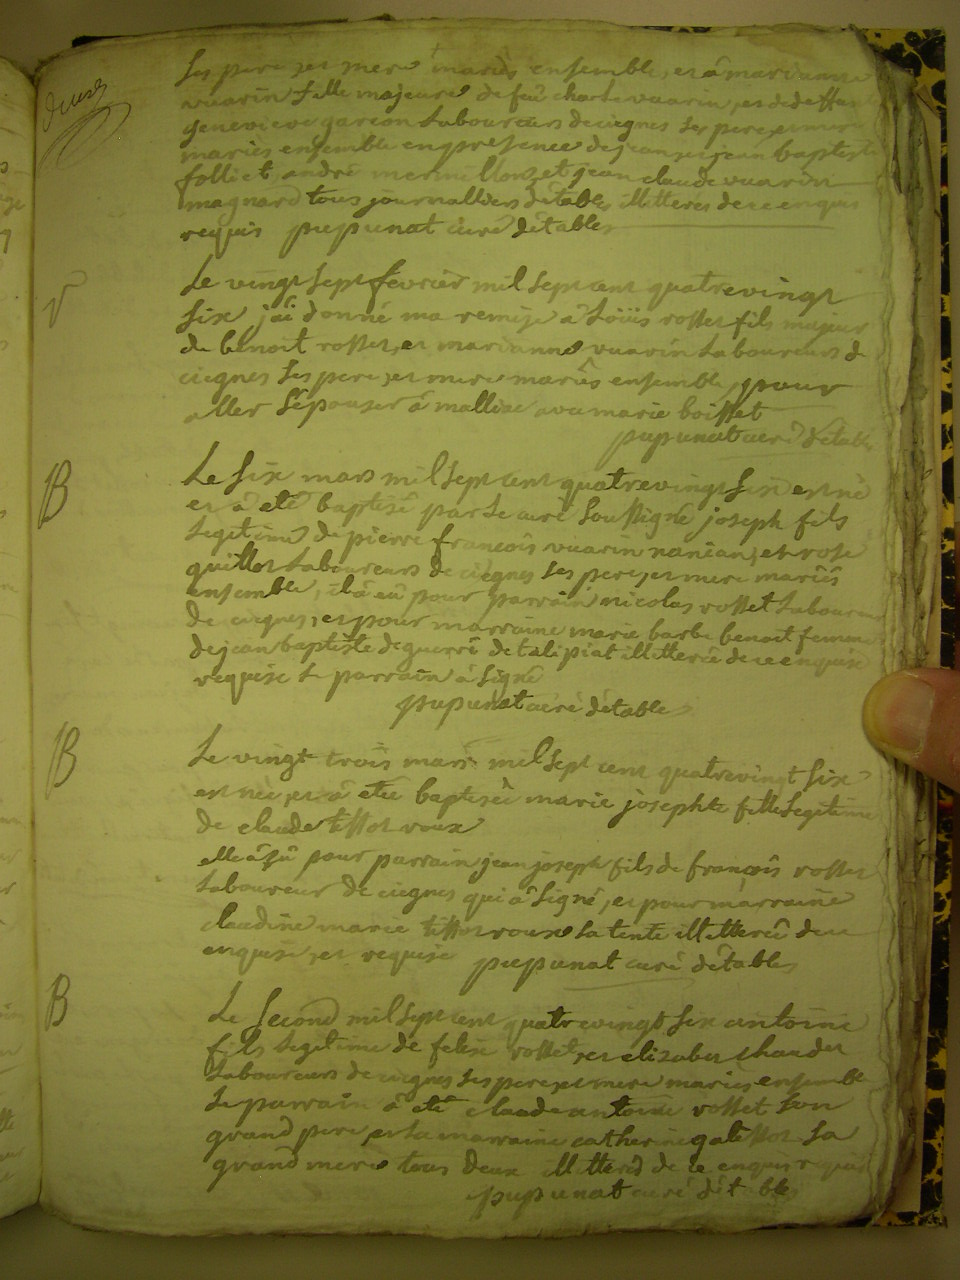 ses pere, et mere mariés ensemble, et à marianne
vuarin fille majeure de feu charle vuarin, et de deffunte
genevieve garcon laboureurs de ciegnes ses pere, et mere
mariés ensemble en presence de jean, et jean baptiste
folliet, andré mermillon, et jean claude vuarin
magnard tous journalliers d'étables illitteres de ce enquis
requis pupunat curé d'étables
Le vingt sept fevrier mil sept cent quatrevingt
six j'ai donné ma remise à Loüis rosset fils majeur
de benoit rosset, et marianne vuarin laboureurs de
ciegnes ses pere, et mere mariés ensemble, pour
aller s'épouser à malliac avec marie boisset
pupunat curé d'étables
B
Le six mars mil sept cent quatrevingt six est né
et à eté baptisé par le curé soussigné joseph fils
legitime de pierre francois vuarin nanian, et rose
quillot laboureurs de ciegnes ses pere, et mere mariés
ensemble, il à eû pour parrain nicolas rosset laboureur
de ciegnes, et pour marraine marie barbe benoit femme
de jean baptiste deguerri de talipiat illitterée de ce enquise
requise le parrain à signé
pupunat curé d'étables
B
Le vingt trois mars mil sept cent quatrevingt six
est née, et à etée baptisée marie josephte fille legitime
de claude tissot roux
elle à eû pour parrain jean joseph fils de françois rosset
laboureur de ciegnes qui à signé, et pour marraine
claudine marie tissot roux sa tente illitterée de ce
enquise, et requise pupunat curé d'étables
B
Le second mil sept cent quatrevingt six antoine
fils legitime de felix rosset, et elizabet chaudet
laboureurs de ciegnes ses pere, et mere mariés ensemble
le parrain à eté claude antoine rosset son
grand pere, et la marraine catherine galissot sa
grand mere tous deux illitterés de ce enquis requis
pupunat curé d'étables